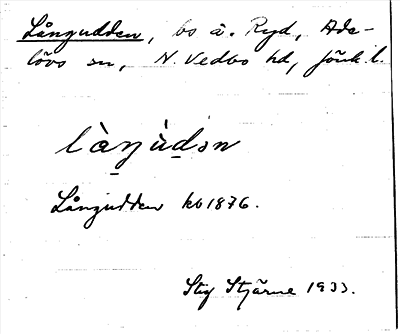 Långudden, bs å. Ryd, Ade-
lövs sn, N. Vedbo hd, Jönk. l.
làŋùdən
Långudden kb 1876.
Stig Stjärne 1933.